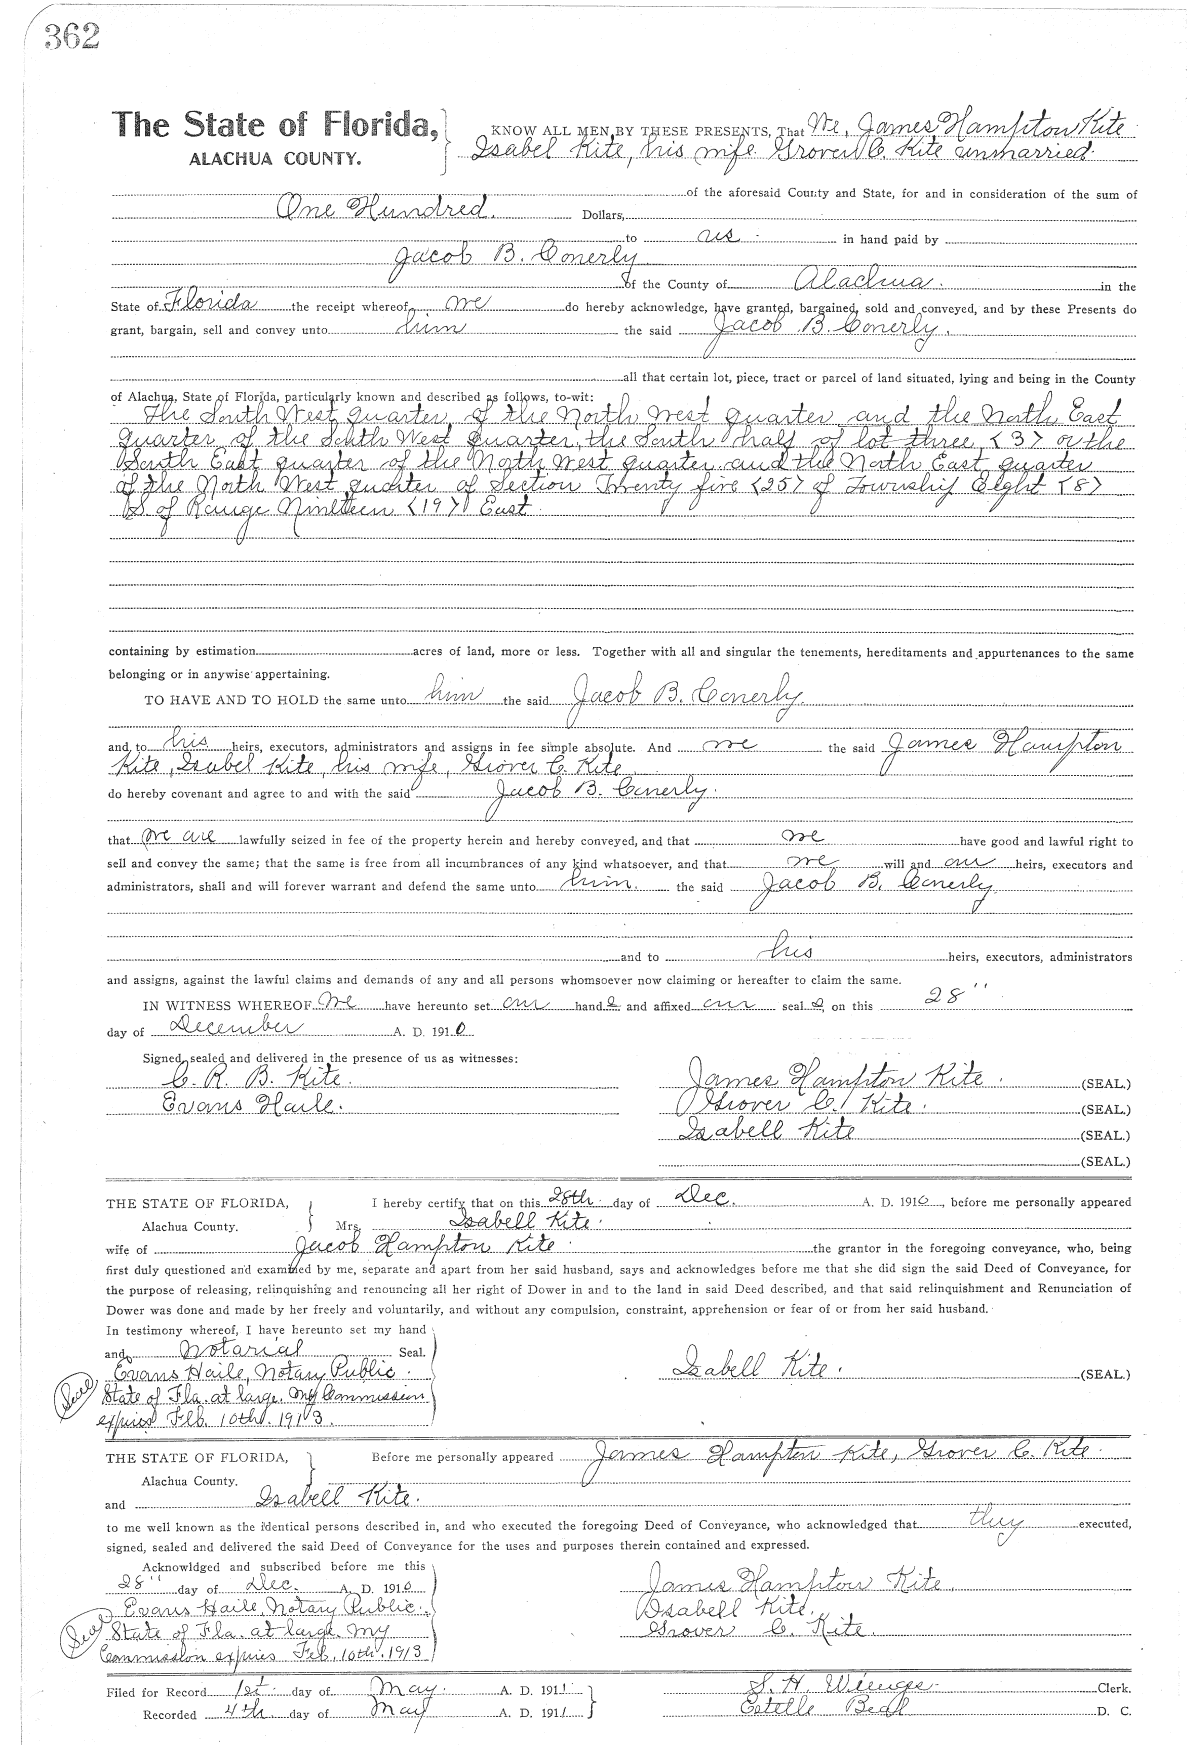 362
The State of Florida,
ALACHUA COUNTY.
KNOW ALL MEN BY THESE PRESENTS, That We, James Hampton Kite
Isabel Kite, his wife Grover C. Kite unmarried
of the aforesaid County and State, for and in consideration of the sum of
One Hundred. Dollars,
to us in hand paid by
Jacob B. Conerly
of the County of Alachua. in the
State of Florida the receipt whereof we do hereby acknowledge, have granted, bargained, sold and conveyed, and by these Presents do
grant, bargain, sell and convey unto him the said Jacob B. Conerly.
all that certain lot, piece, tract or parcel of land situated, lying and being in the County
of Alachua, State of Florida, particularly known and described as follows, to-wit:
The South West quarter of the North West quarter and the North East
quarter of the South West quarter, the South half of lot three <3> or the
South East quarter of the North West quarter and the North East quarter
of the North West quarter of Section Twenty five <25> of Township Eight <8>
S. of Range Nineteen <19> East
containing by estimation acres of land, more or less. Together with all and singular the tenements, hereditaments and appurtenances to the same
belonging or in anywise appertaining.
TO HAVE AND TO HOLD the same unto him the said Jacob B. Conerly.
and to his heirs, executors, administrators and assigns in fee simple absolute. And we the said James Hampton
Kite, Isabel Kite, his wife, Grover C. Kite
do hereby covenant and agree to and with the said Jacob B. Conerly.
that we are lawfully seized in fee of the property herein and hereby conveyed, and that we have good and lawful right to
sell and convey the same; that the same is free from all incumbrances of any kind whatsoever, and that we will and our heirs, executors and
administrators, shall and will forever warrant and defend the same unto him. the said Jacob B. Conerly
and to his heirs, executors, administrators
and assigns, against the lawful claims and demands of any and all persons whomsoever now claiming or hereafter to claim the same.
IN WITNESS WHEREOF We have hereunto set our hands and affixed our seals on this 28"
day of December A. D. 1910
Signed, sealed and delivered in the presence of us as witnesses:
C. R. B. Kite.
Evans Haile.
James Hampton Kite. (SEAL.)
Grover C. Kite. (SEAL.)
Isabell Kite (SEAL.)
(SEAL.)
THE STATE OF FLORIDA,
Alachua County.
I hereby certify that on this 28th day of Dec. A. D. 1910, before me personally appeared
Mrs. Isabell Kite.
wife of Jacob Hampton Kite the grantor in the foregoing conveyance, who, being
first duly questioned and examined by me, separate and apart from her said husband, says and acknowledges before me that she did sign the said Deed of Conveyance, for
the purpose of releasing, relinquishing and renouncing all her right of Dower in and to the land in said Deed described, and that said relinquishment and Renunciation of
Dower was done and made by her freely and voluntarily, and without any compulsion, constraint, apprehension or fear of or from her said husband.
In testimony whereof, I have hereunto set my hand
and Notarial Seal.
Evans Haile, Notary Public.
Seal State of Fla. at large. My Commission
expires Feb. 10th. 1913.
Isabell Kite. (SEAL.)
THE STATE OF FLORIDA,
Alachua County.
Before me personally appeared James Hampton Kite, Grover C. Kite.
and Isabell Kite.
to me well known as the identical persons described in, and who executed the foregoing Deed of Conveyance, who acknowledged that they executed,
signed, sealed and delivered the said Deed of Conveyance for the uses and purposes therein contained and expressed.
Acknowldged and subscribed before me this
28" day of Dec. A. D. 1910
Evans Haile, Notary Public.
Seal State of Fla. at large. My
Commission expires Feb. 10th. 1913
James Hampton Kite.
Isabell Kite.
Grover C. Kite.
Filed for Record 1st. day of May. A. D. 1911
Recorded 4th. day of May A. D. 1911
S. H. Wienges. Clerk.
Estelle Beal D. C.